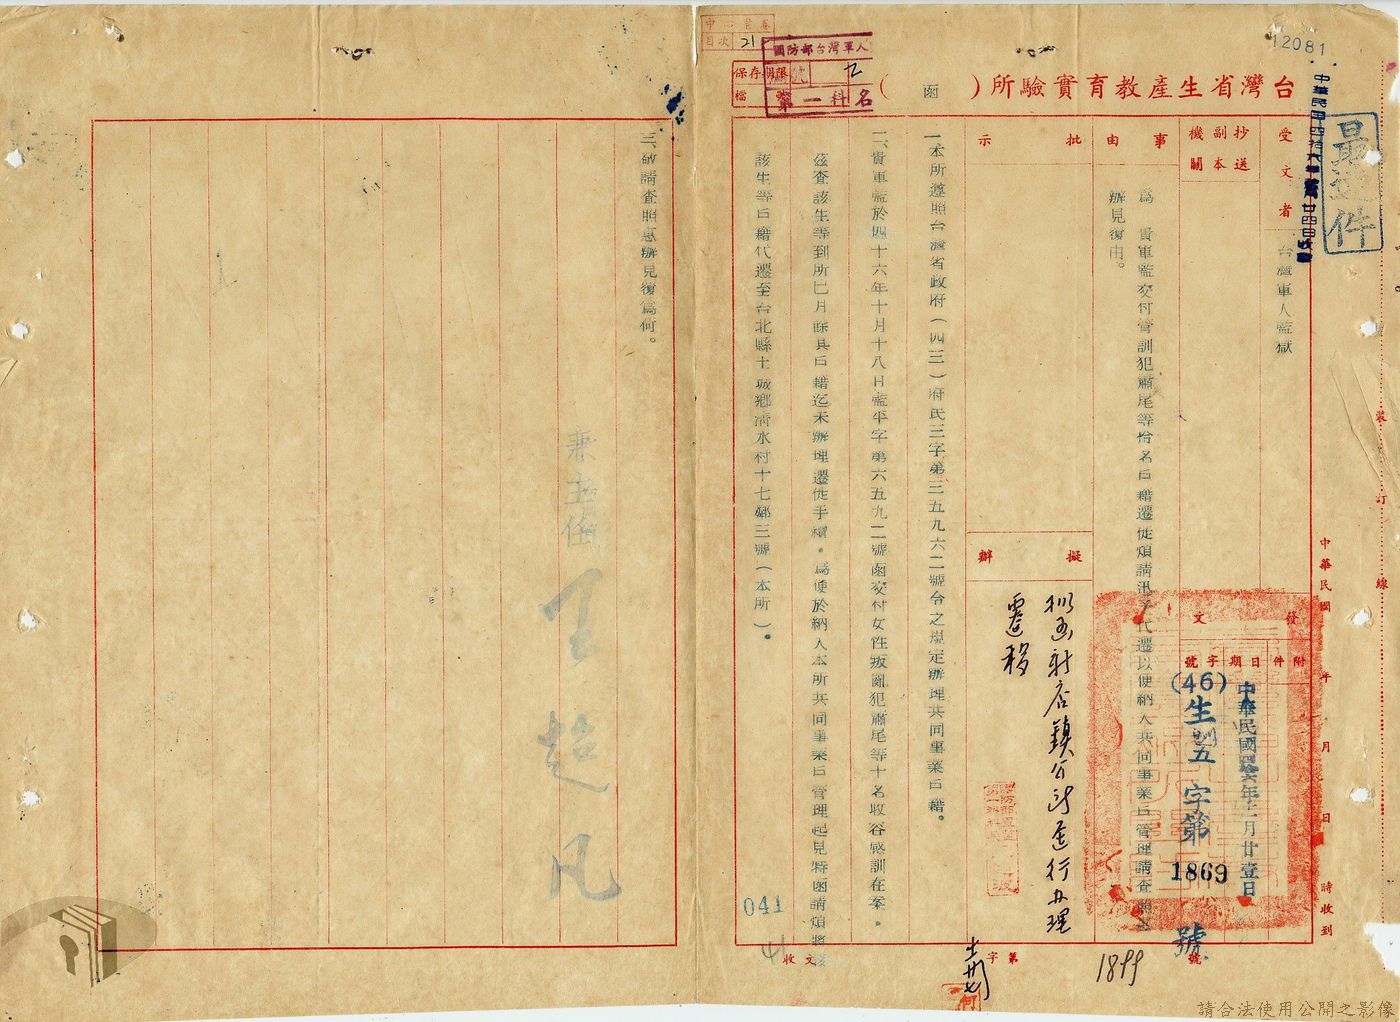 12081
最速件
中華民國四十六年 廿四日收
台灣省生產教育實驗所（函）
中心業務
目次 21
國防部台灣軍人
第一科
保存期限
檔號
受文者
台灣軍人監獄
抄送副本機關
事由
為 貴軍監交付管訓犯蕭尾等拾名戶籍遷徙煩請迅予代遷以便納入共同事業戶管理請查照
辦見復由。
批示
擬辦
桃函新店鎮公所進行办理
遷移
發文
附件
日期
字號
中華民國 年十一月廿壹日
(46)生訓五字第1869號
一本所遵照台灣省政府（四三）府民三字第三五九六二號令之規定辦理共同事業戶籍。
二、貴軍監於四十六年十月十八日監平字第六五九二號函交付女性叛亂犯蕭尾等十名收容感訓在案。
茲查該生等到所已月餘其戶籍迄未辦理遷徙手續。為便於納入本所共同事業戶管理起見特函請煩將該
該生等戶籍代遷至台北縣土城鄉清水村十七鄰三號（本所）。
三、敬請查照惠辦見復為何。
兼主任 王超凡
041
收文
字第
1899
號
中華民國 年 月 日 時收到
裝訂線
請合法使用公開之影像